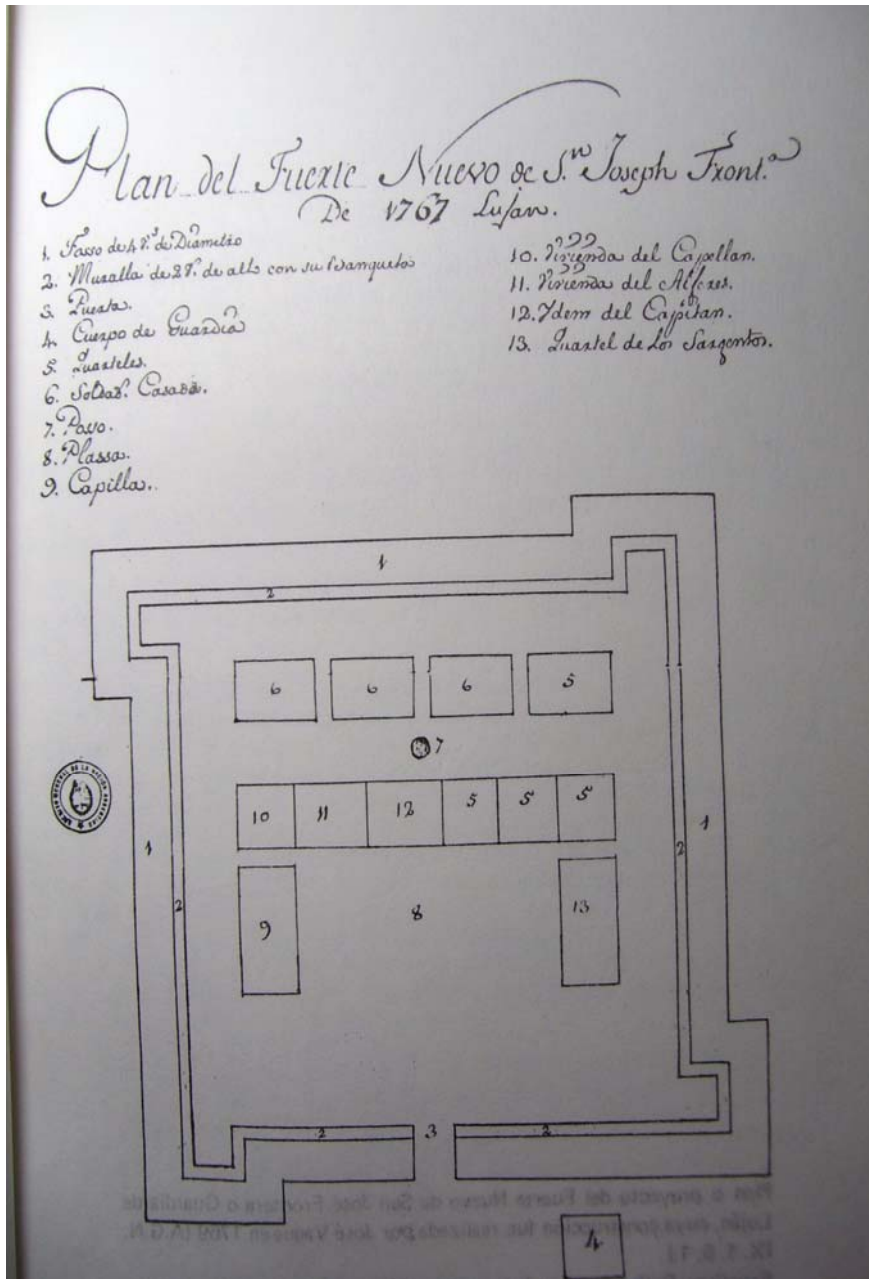 Plan del Fuerte Nuevo de S.n Joseph Front.a
De 1767 Lujan.
1. Fosso de 4 v.s de Diametro
2. Muralla de 2 v.s de alto con su Banqueta
3. Puerta.
4. Cuerpo de Guardia
5. Quarteles.
6. Soldad.s Casados.
7. Posso.
8. Plassa.
9. Capilla.
10. Vivienda del Capellan.
11. Vivienda del Alferes.
12. Ydem del Capitan.
13. Quartel de los Sargentos.
1
2
6 6 6 5
7
10 11 12 5 5 5
1 2 2 1
9 8 13
2 3 2
4